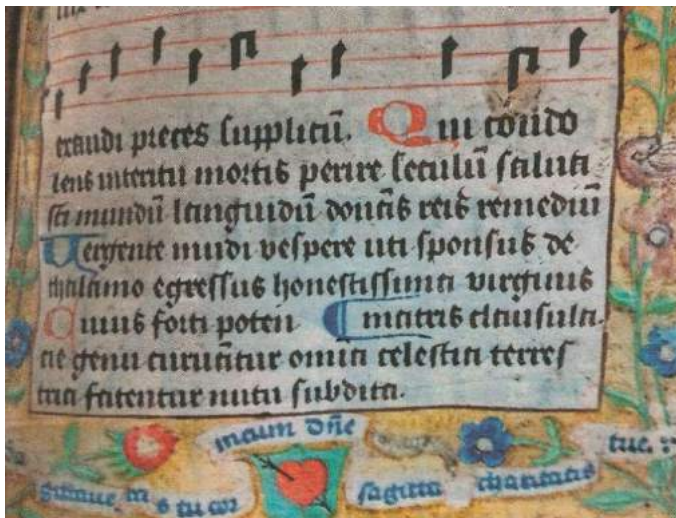 exaudi preces supplicū. Qui condo
lens interitu mortis perire seculū salua
sti mundū languidū donās reis remediū
Uergente mūdi vespere uti sponsus de
thalamo egressus honestissima virginis
Cuius forti poten matris clausula.
tie genu curuātur omnia celestia terres
tria fatentur nutu subdita.
meum dñe
tue.
s tu cor sagitta charitatis